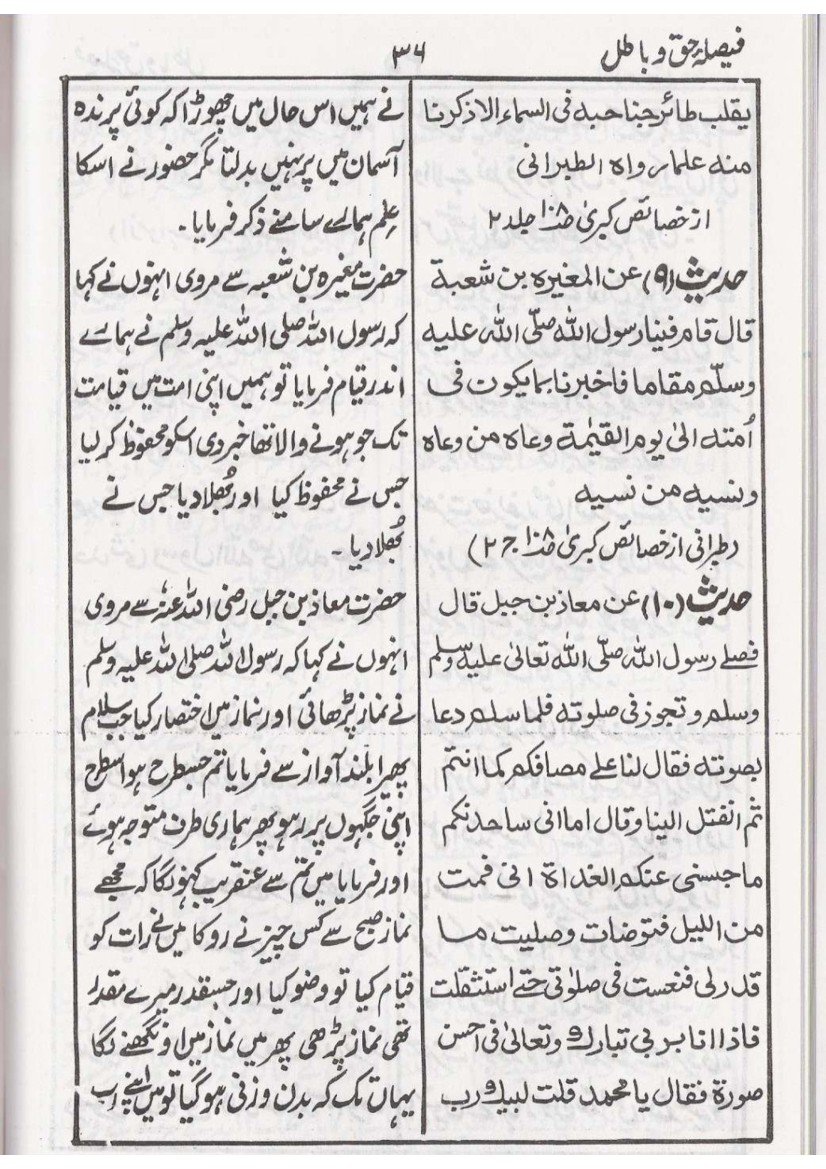 فیصلۂ حق و باطل
۳۶
یقلب طائر جناحبہ فی السماء الا ذکرنا
منہ علما رواہ الطبرانی
از خصائص کبریٰ جلد ۲
حدیث (۹) عن المغیرہ بن شعبة
قال قام فینا رسول اللہ صلّی اللہ علیہ
وسلّم مقاما فاخبرنا بما یکون فی
اُمتہ الیٰ یوم القیٰمة وعاہ من وعاہ
ونسیہ من نسیہ
(طبرانی از خصائص کبریٰ ج ۲)
حدیث (۱۰) عن معاذ بن جبل قال
فصلے رسول اللہ صلّی اللہ تعالیٰ علیہ وسلم
وسلم و تجوز فی صلوتہ فلما سلم دعا
بصوتہ فقال لنا علی مصافکم کما انتم
ثم انفتل الینا وقال اما انی ساحدثکم
ما حبسنی عنکم الغداة انی قمت
من اللیل فتوضات وصلیت ما
قدر لی فنعست فی صلوٰتی حتے استثقلت
فاذا انا بربی تبارک وتعالیٰ فی احسن
صورة فقال یا محمد قلت لبیک رب
نے ہمیں اس حال میں چھوڑا کہ کوئی پرندہ
آسمان میں پر نہیں بدلتا مگر حضور نے اسکا
علم ہمارے سامنے ذکر فرمایا۔
حضرت مغیرہ بن شعبہ سے مروی انہوں نے کہا
کہ رسول اللہ صلی اللہ علیہ وسلم نے ہمارے
اندر قیام فرمایا تو ہمیں اپنی امت میں قیامت
تک جو ہونے والا تھا خبر دی اسکو محفوظ کرلیا
جس نے محفوظ کیا اور بُھلا دیا جس نے
بُھلا دیا۔
حضرت معاذ بن جبل رضی اللہ عنہٗ سے مروی
انہوں نے کہا کہ رسول اللہ صلی اللہ علیہ وسلم
نے نماز پڑھائی اور نماز میں اختصار کیا جب سلام
پھیرا بلند آواز سے فرمایا تم جسطرح ہو اسطرح
اپنی جگہوں پر رہو پھر ہماری طرف متوجہ ہوئے
اور فرمایا میں تم سے عنقریب کہونگا کہ مجھے
نماز صبح سے کس چیز نے روکا میں نے رات کو
قیام کیا تو وضو کیا اور جسقدر میرے مقدر
تھی نماز پڑھی پھر میں نماز میں اونگھنے لگا
یہاں تک کہ بدن وزنی ہو گیا تو میں اپنے رب